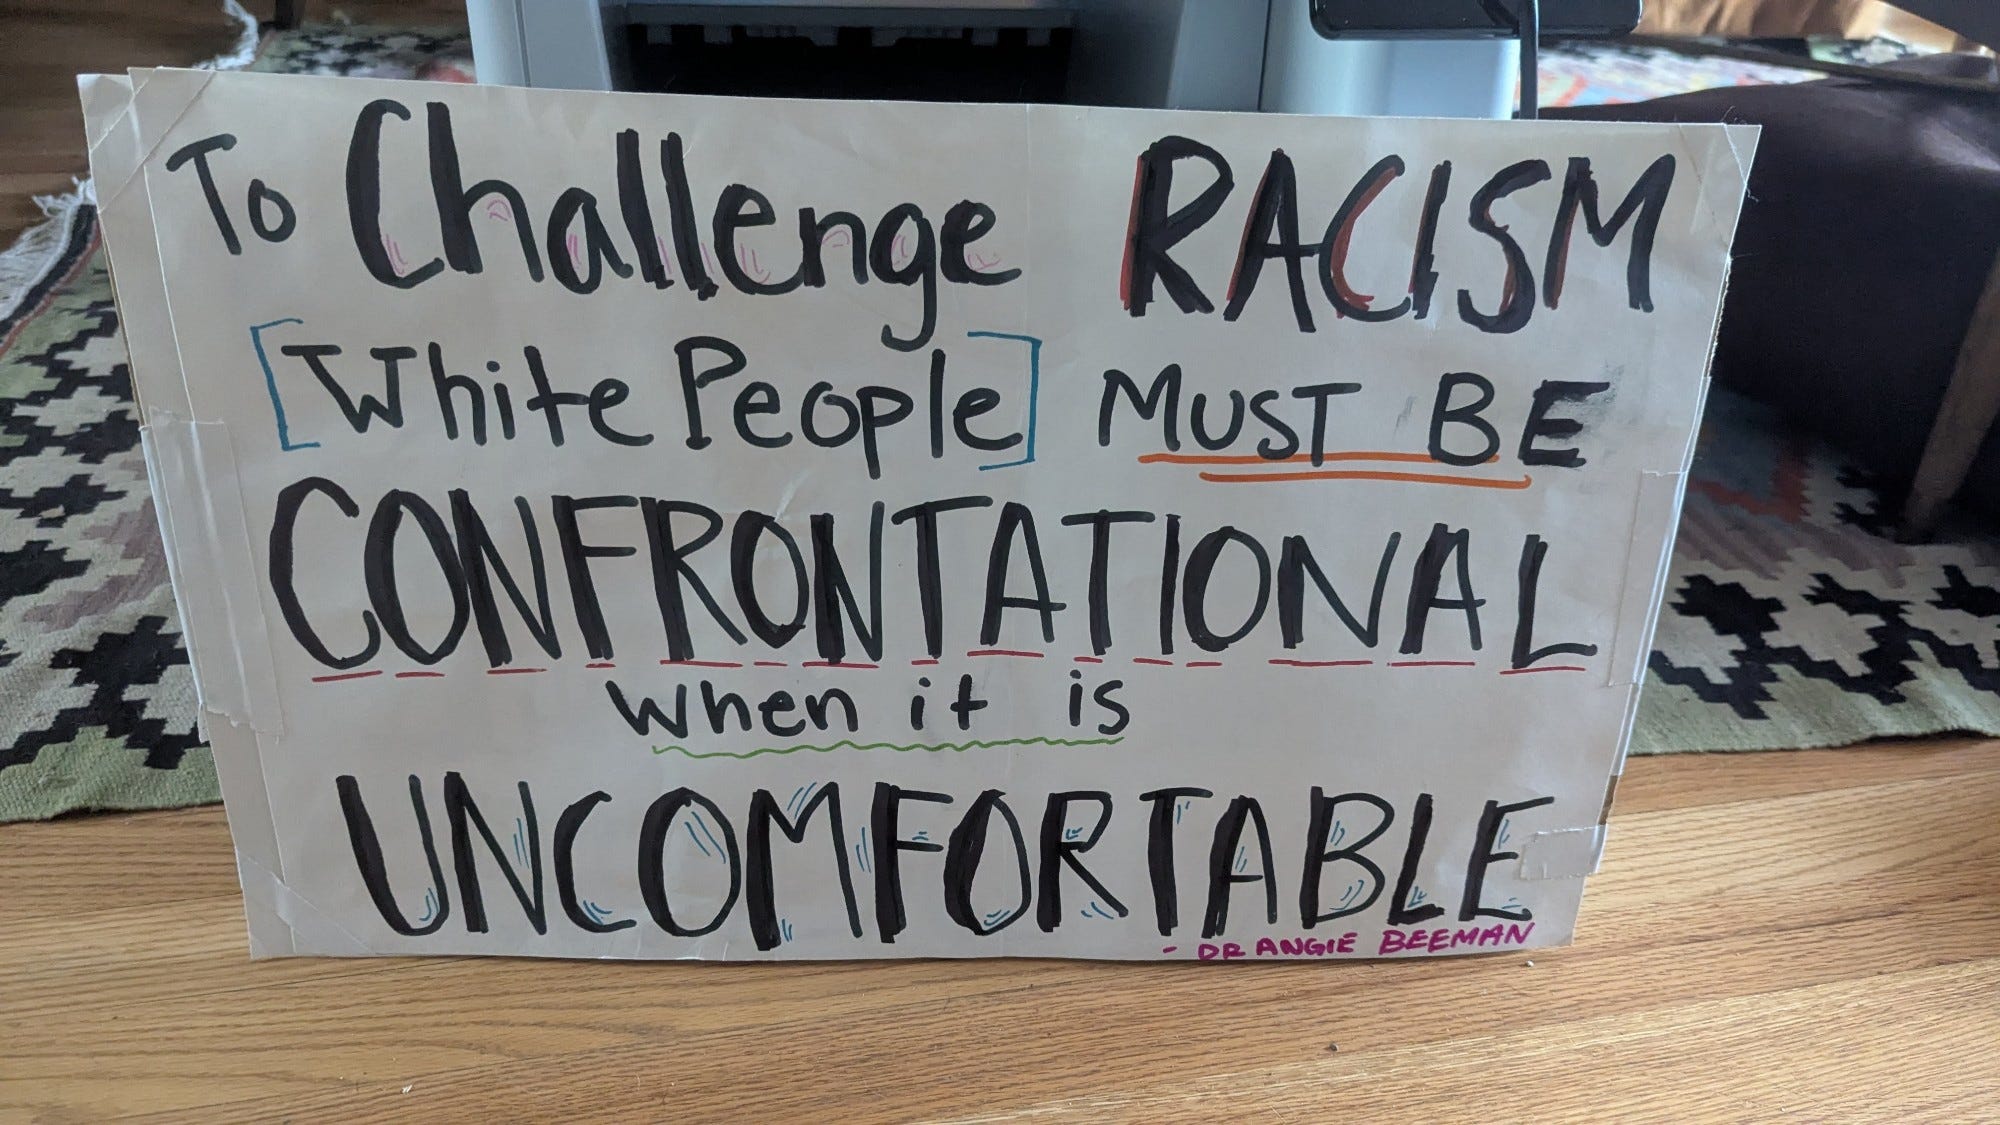 To Challenge RACISM
[White People] MUST BE
CONFRONTATIONAL
when it is
UNCOMFORTABLE
- DR ANGIE BEEMAN